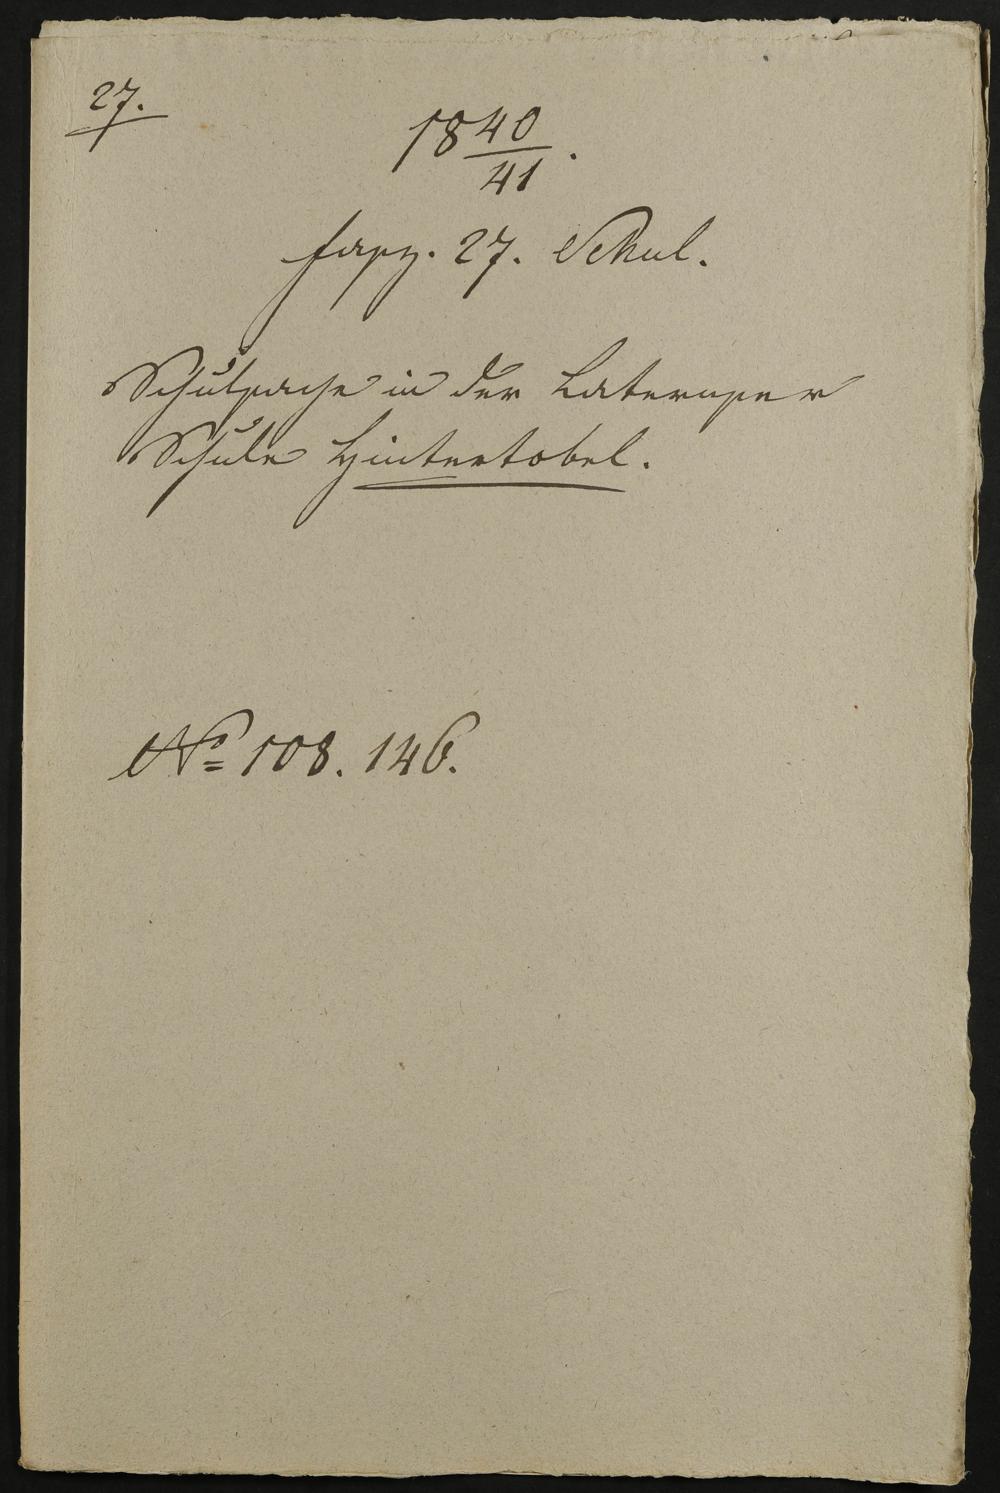 27.
1840
41.
fasz. 27. Schul.
Schulsache in der Laternser
Schule Hintertobel.
No 108. 146.